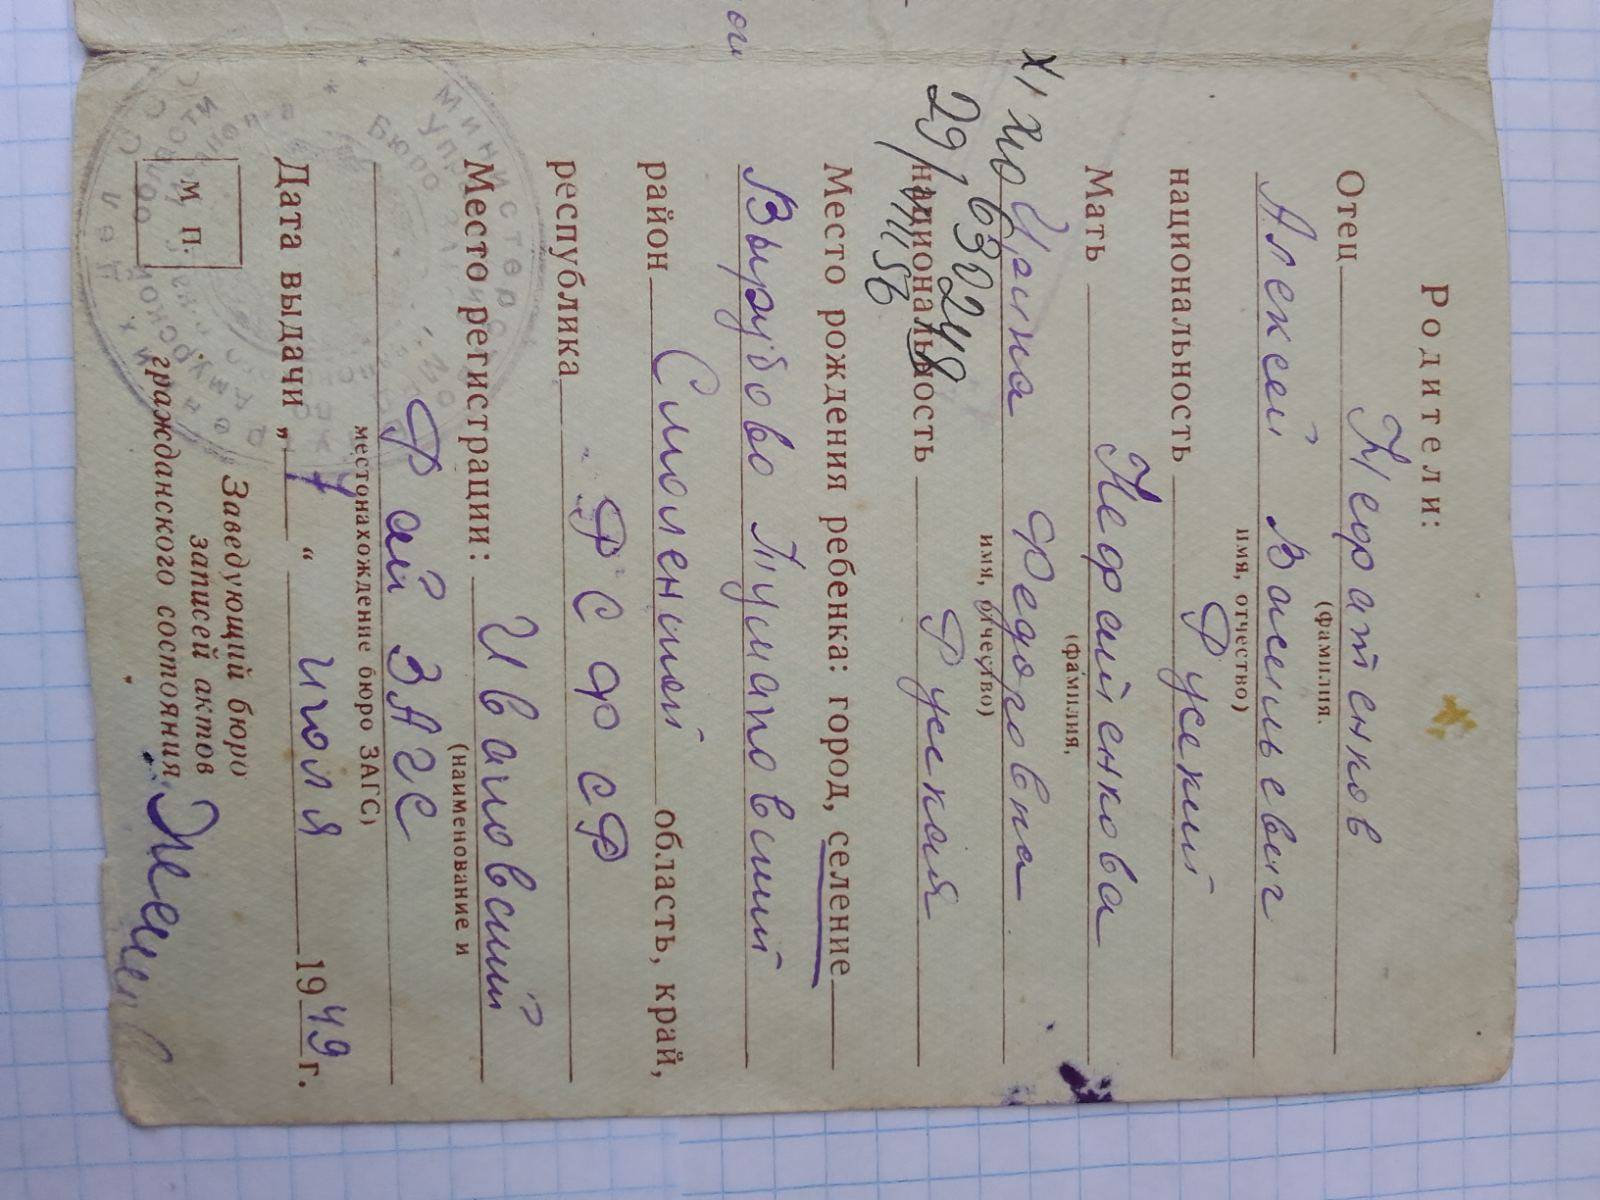 Родители:
Отец
(фамилия,
Алексей Васильевич
имя, отчество)
национальность Русский
Мать
(фамилия,
Ирина Федоровна
имя, отчество)
национальность Русская
Место рождения ребенка: город, селение
Вырубово Тумановский
район Смоленской область, край,
республика РСФСР
Место регистрации: Ивановский
(наименование и
Рай ЗАГС
местонахождение бюро ЗАГС)
Дата выдачи „ 7 “ июля 1949 г.
М. П.
Заведующий бюро
записей актов
гражданского состояния